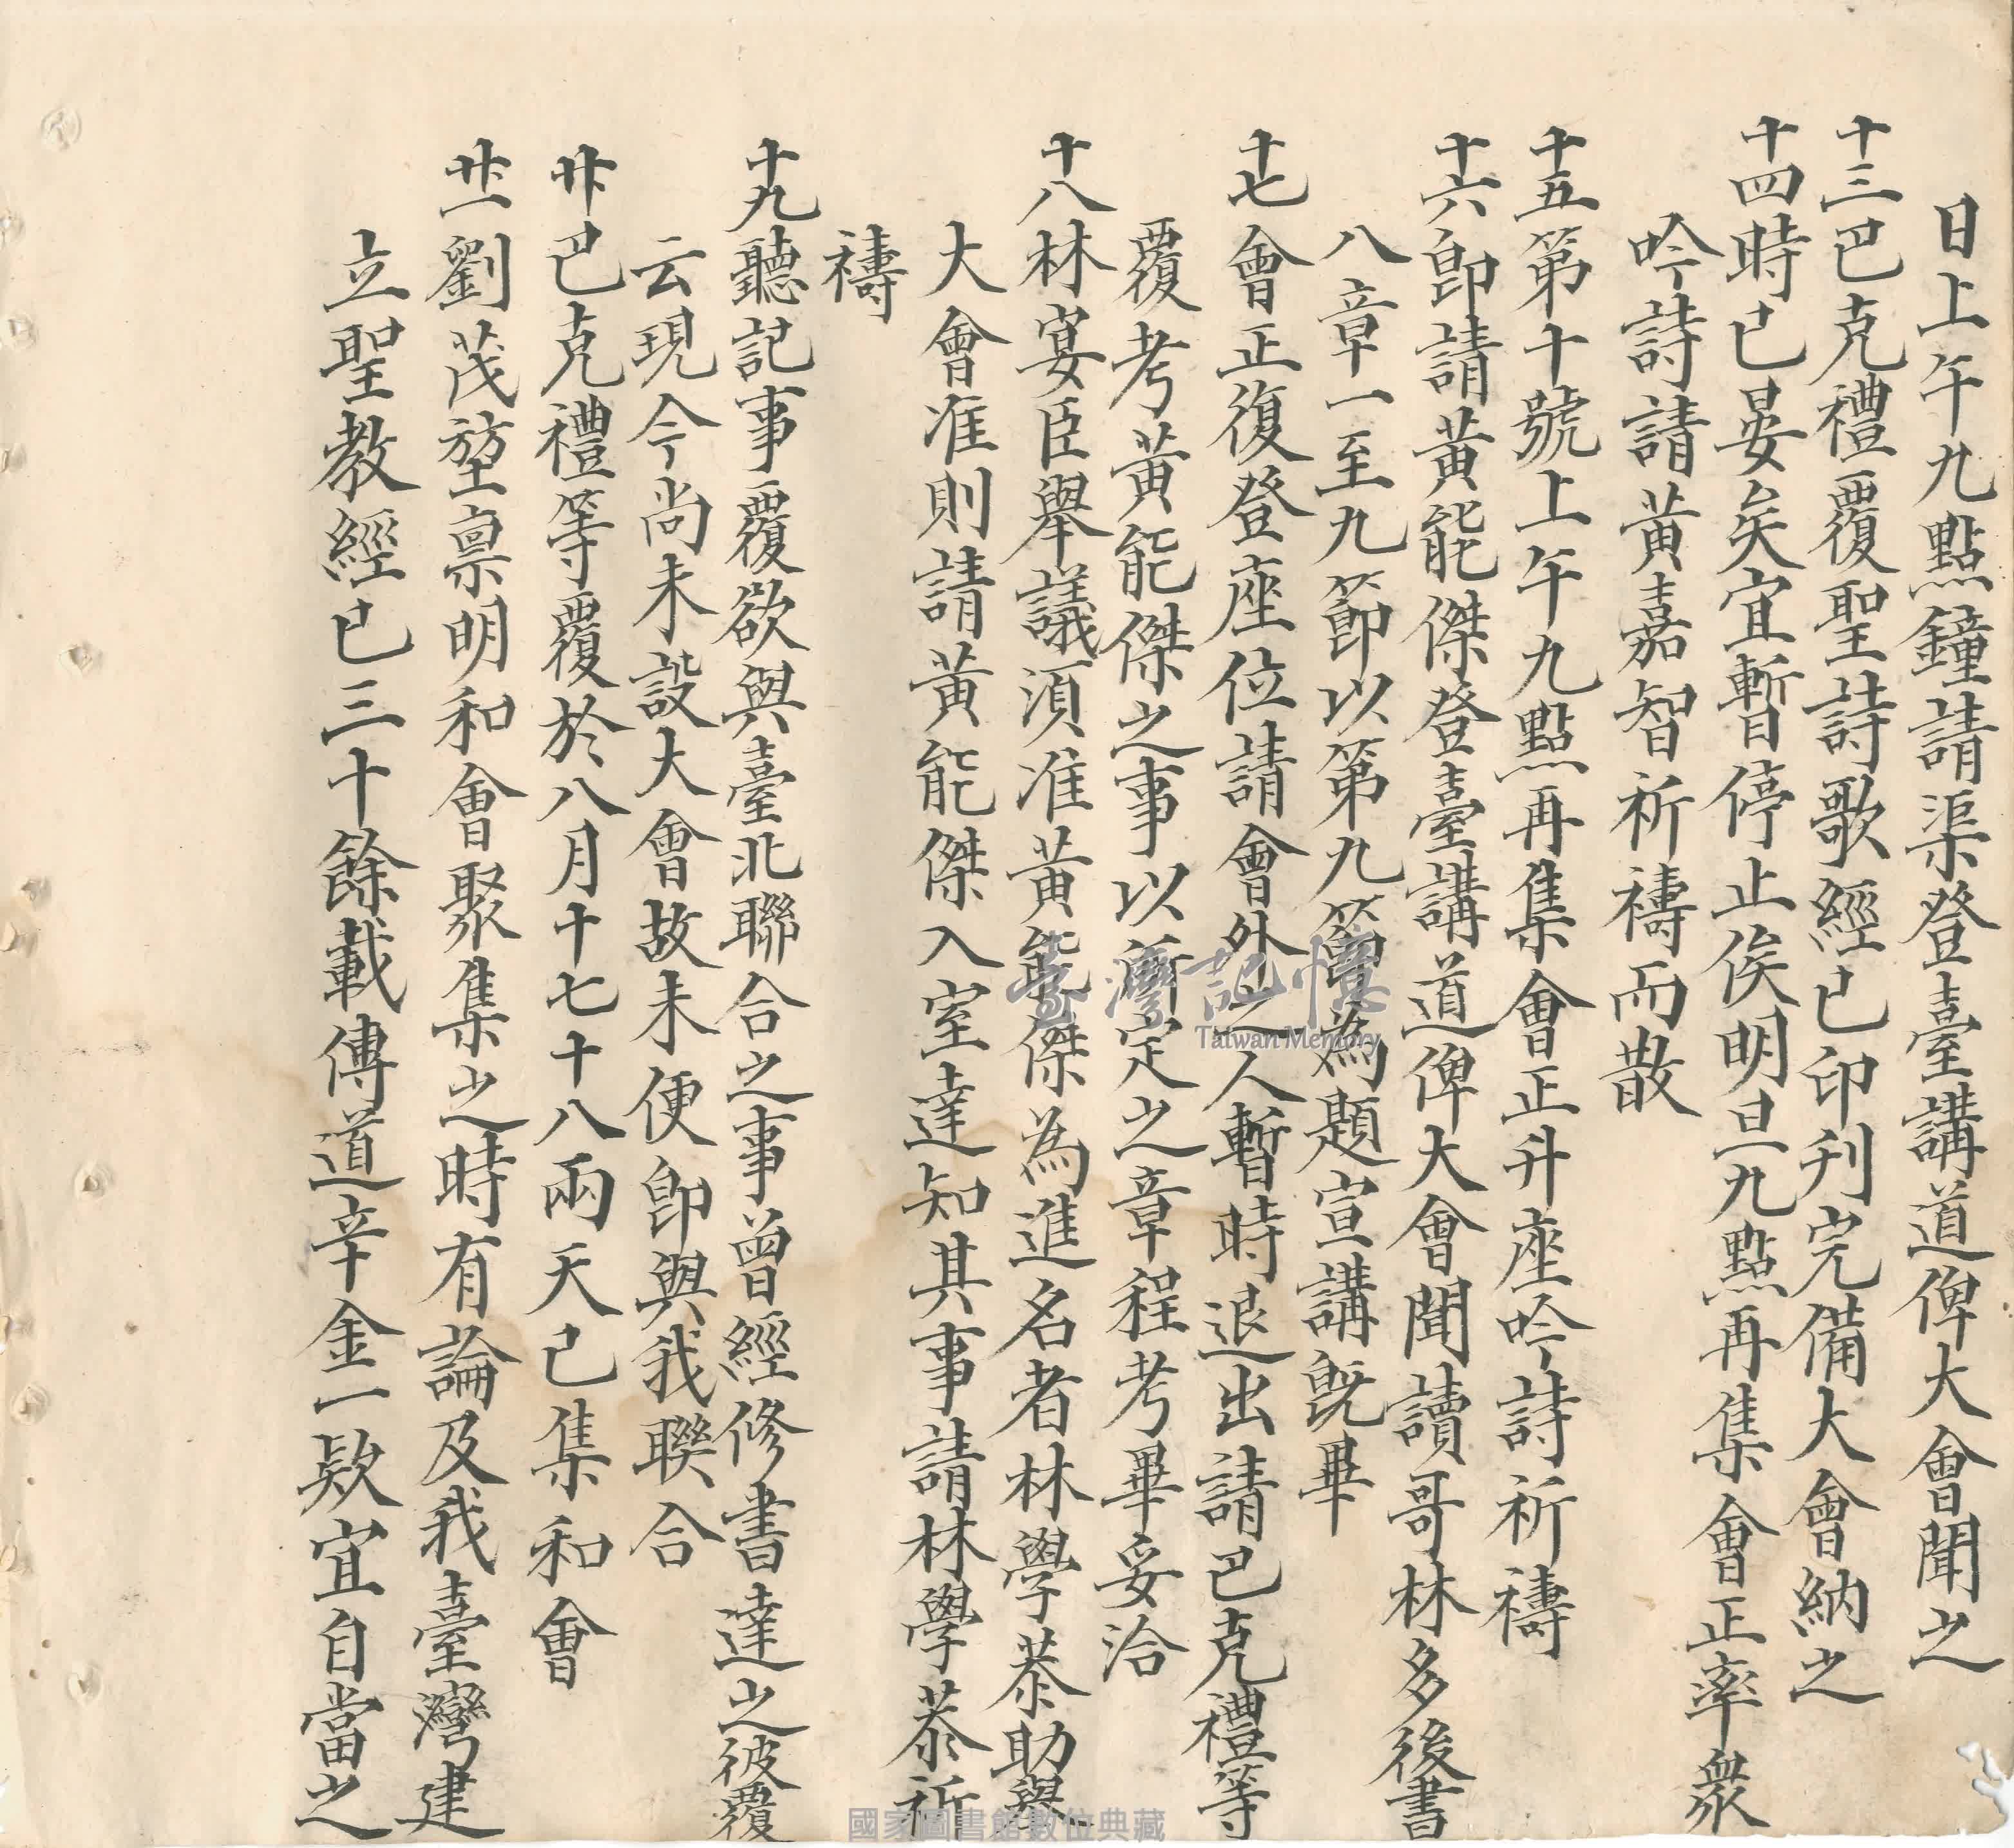 日上午九點鐘請渠登臺講道俾大會聞之
十三巴克禮覆聖詩歌經已印刋完備大會納之
十四時已晏矣宜暫停止俟明旦九點再集會正率衆
吟詩請黃嘉智祈禱而散
十五第十號上午九點再集會正升座吟詩祈禱
十六卽請黃能傑登臺講道俾大會聞讀哥林多後書
八章一至九節以第九節為題宣講旣畢
十七會正復登座位請會外之人暫時退出請巴克禮等
覆考黃能傑之事以所定之章程考畢妥洽
十八林宴臣舉議須准黃能傑為進名者林學恭助舉
大會准則請黃能傑入室達知其事請林學恭祈
禱
十九聽記事覆欲與臺北聯合之事曾經修書達之彼覆
云現今尚未設大會故未便卽與我聯合
廿巴克禮等覆於八月十七十八兩天已集和會
廿一劉茂堃禀明和會聚集之時有論及我臺灣建
立聖教經已三十餘載傳道辛金一欵宜自當之
臺灣記憶
Taiwan Memory
國家圖書館數位典藏